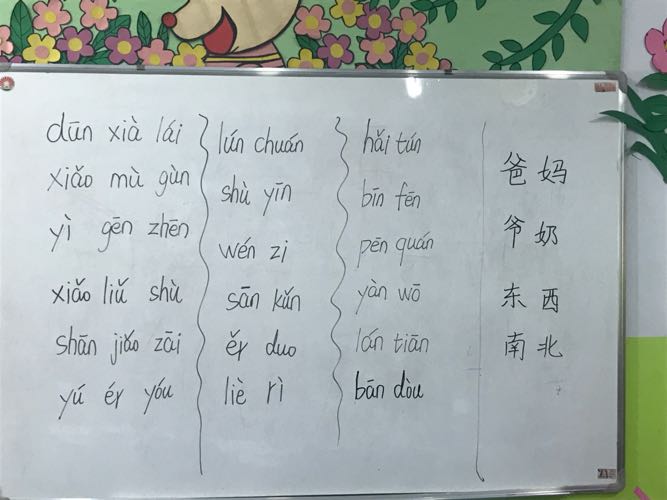 dūn xià lái
xiǎo mù gùn
yì gēn zhēn
xiǎo liǔ shù
shān jiǎo zāi
yú ér yóu
lún chuán
shù yīn
wén zi
sān kǔn
ěr duo
liè rì
hǎi tún
bīn fēn
pēn quán
yàn wō
lán tiān
bān dòu
爸 妈
爷 奶
东 西
南 北